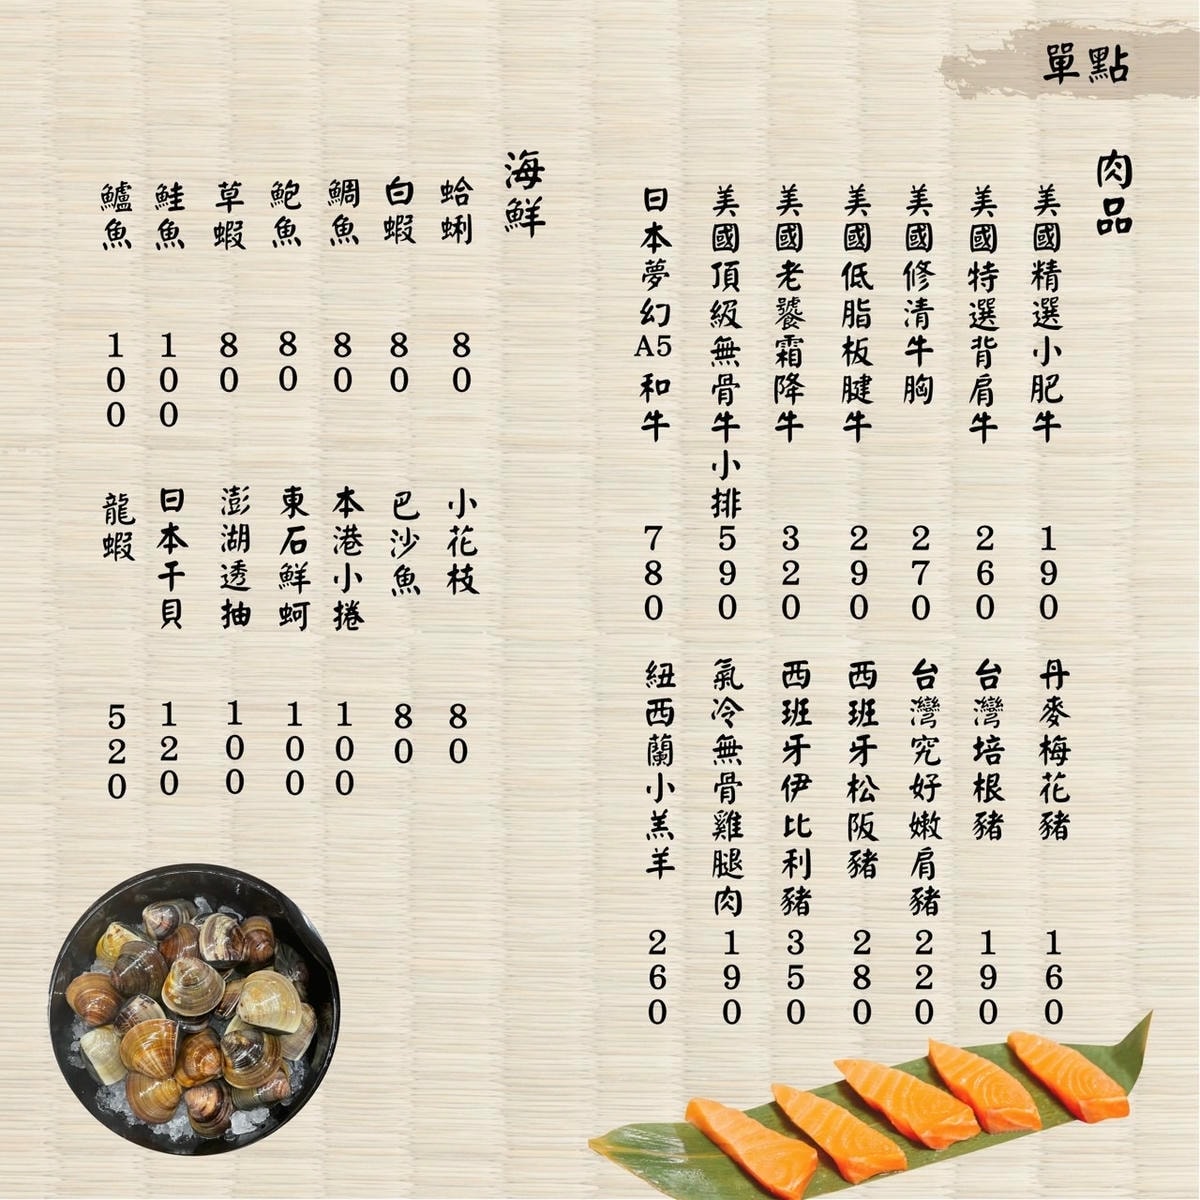 單點
肉品
美國精選小肥牛 190
美國特選背肩牛 260
美國修清牛胸 270
美國低脂板腱牛 290
美國老饕霜降牛 320
美國頂級無骨牛小排 590
日本夢幻A5和牛 780
丹麥梅花豬 160
台灣培根豬 190
台灣究好嫩肩豬 220
西班牙松阪豬 280
西班牙伊比利豬 350
氣冷無骨雞腿肉 190
紐西蘭小羔羊 260
海鮮
蛤蜊 80
白蝦 80
鯛魚 80
鮑魚 80
草蝦 80
鮭魚 100
鱸魚 100
小花枝 80
巴沙魚 80
本港小捲 100
東石鮮蚵 100
澎湖透抽 100
日本干貝 120
龍蝦 520